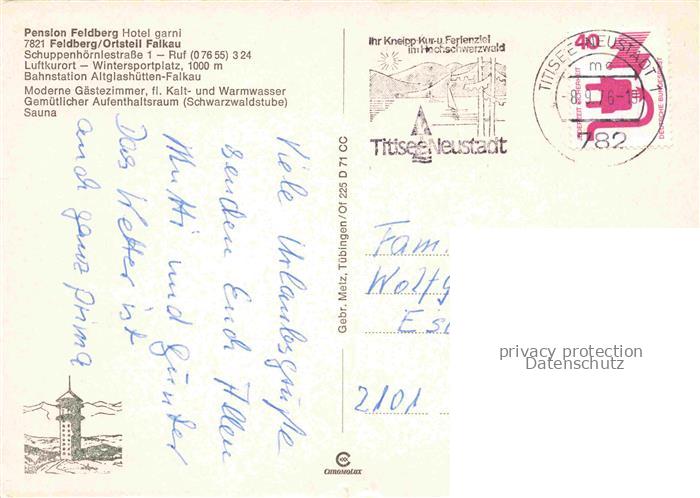 Pension Feldberg Hotel garni
7821 Feldberg/Ortsteil Falkau
Schuppenhörnlestraße 1 – Ruf (0 76 55) 3 24
Luftkurort – Wintersportplatz, 1000 m
Bahnstation Altglashütten-Falkau
Moderne Gästezimmer, fl. Kalt- und Warmwasser
Gemütlicher Aufenthaltsraum (Schwarzwaldstube)
Sauna
Ihr Kneipp-Kur-u. Ferienziel
im Hochschwarzwald
Titisee-Neustadt
TITISEE-NEUSTADT 1
782
40
JEDERZEIT SICHERHEIT
DEUTSCHE BUNDESPOST
Viele Urlaubsgrüße
senden Euch Allen
Mutti und Günter
Das Wetter ist
auch ganz prima
Gebr. Metz, Tübingen/Of 225 D 71 CC
Fam.
Wolfg
2101
CHROMOLUX
privacy protection
Datenschutz